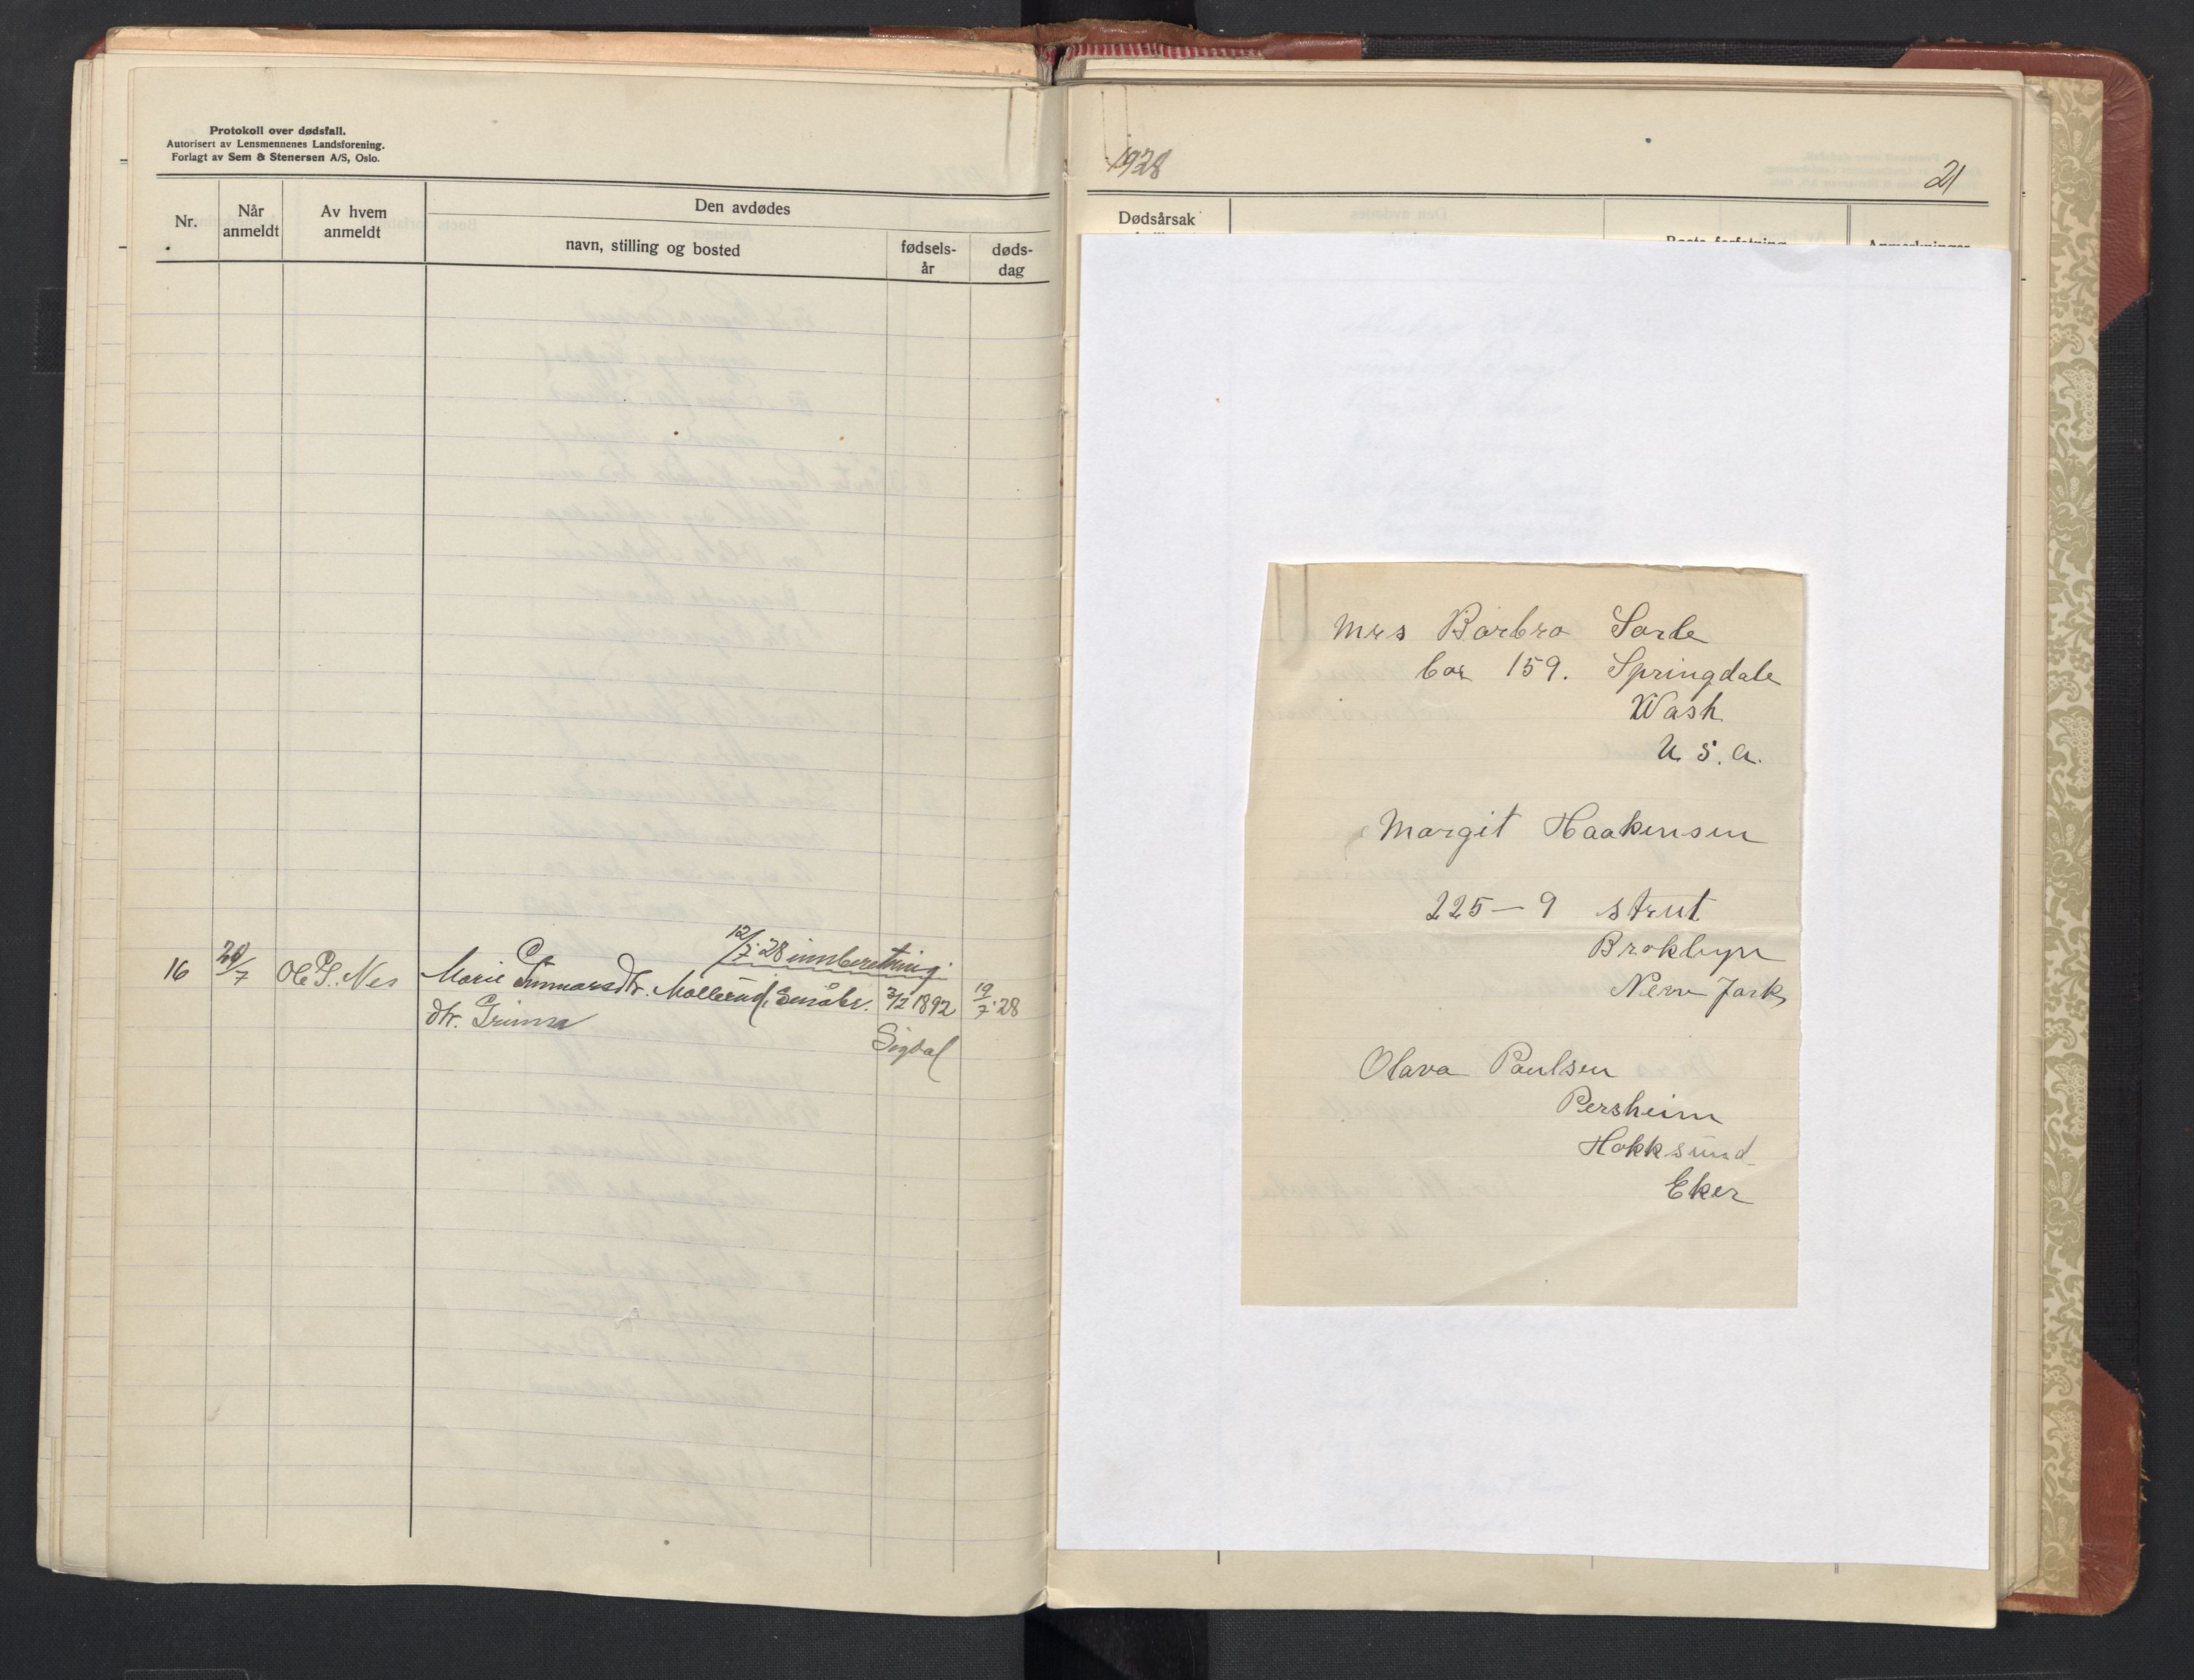 Protokoll over dødsfall.
Autorisert av Lensmennenes Landsforening.
Forlagt av Sem & Stenersen A/S, Oslo.
Nr.
Når anmeldt
Av hvem anmeldt
Den avdødes
navn, stilling og bosted
fødsels-år
døds-dag
12/7.28 innberetning.
16 20/7 Ole P. Nes Marie Gunnarsdtr. Mollerud, Småbr. 3/2 1892 19/7.28
dtr. Grimsa
Sigdal
1928
21
Dødsårsak
Boets forfatning
Anmerkninger
Mrs Barbro Sorle
box 159. Springdale
Wash
U. S. A.
Margit Haakensen
225 — 9 street
Broklyn
New Jork
Olava Paulsen
Persheim
Hokksund
Eker